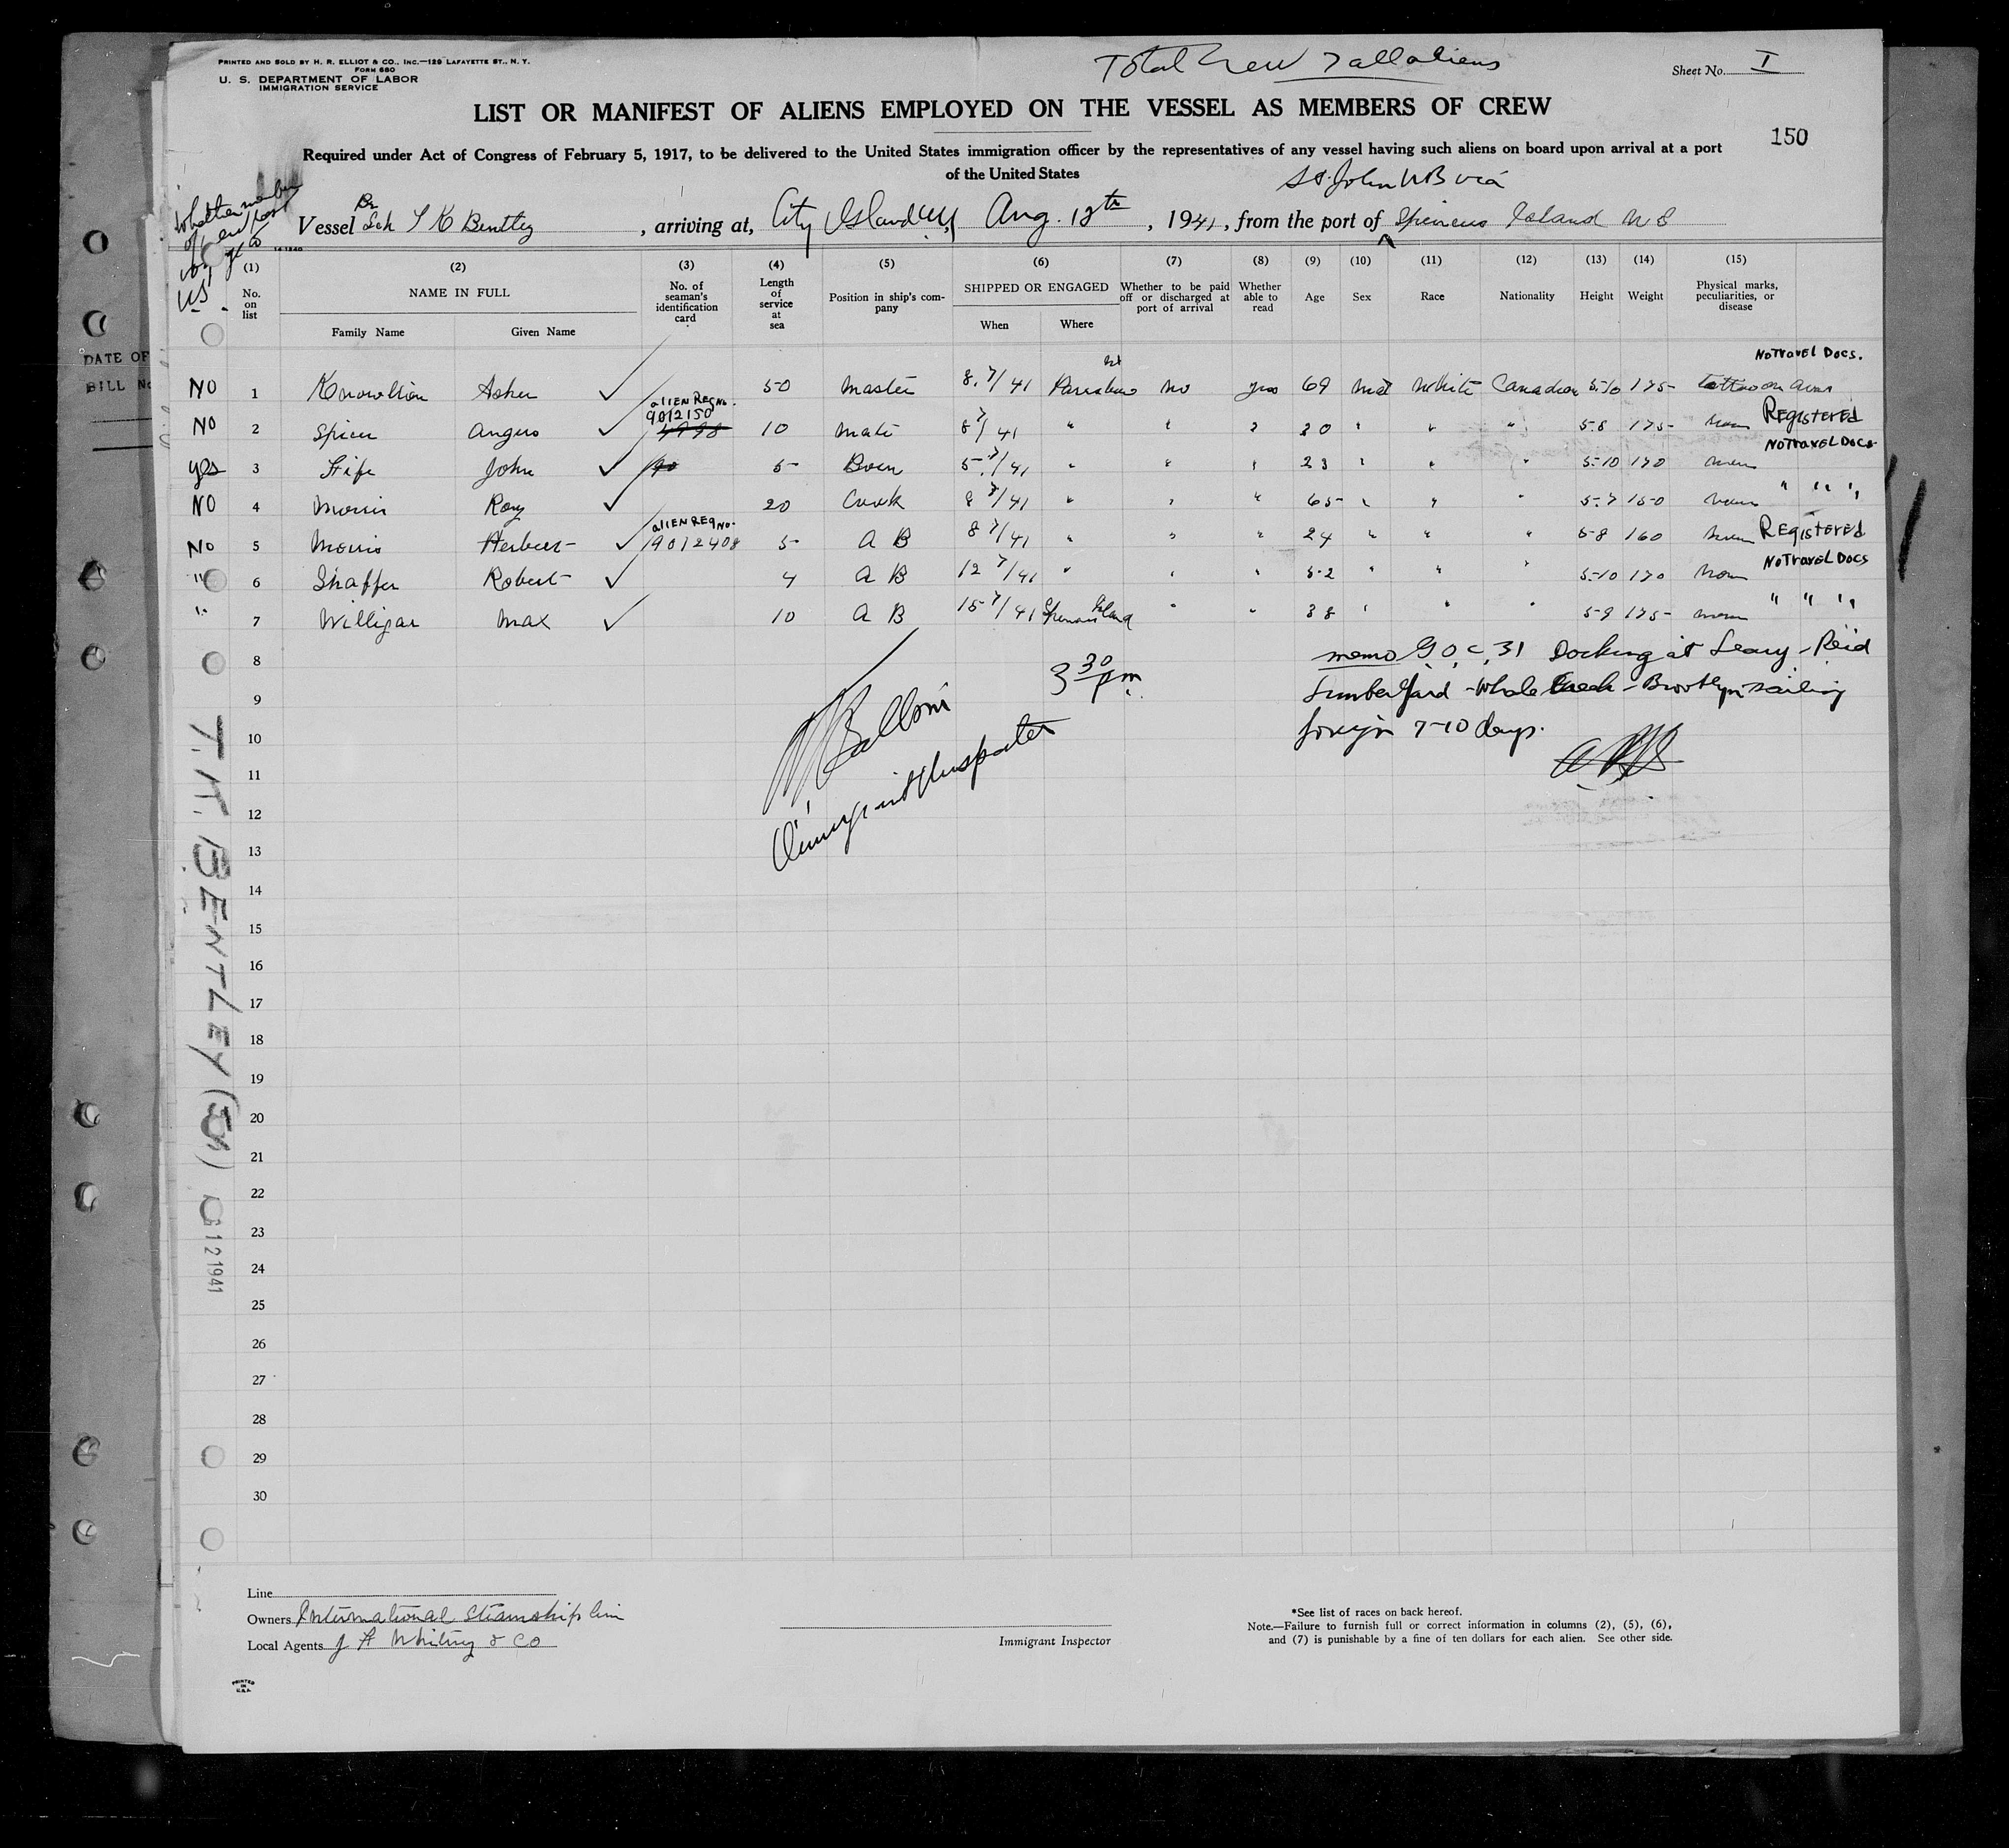 PRINTED AND SOLD BY H. R. ELLIOT & CO., INC.—129 LAFAYETTE ST., N. Y.
FORM 680
U. S. DEPARTMENT OF LABOR
IMMIGRATION SERVICE
Total Crew 7 all aliens
Sheet No. I
LIST OR MANIFEST OF ALIENS EMPLOYED ON THE VESSEL AS MEMBERS OF CREW
150
Required under Act of Congress of February 5, 1917, to be delivered to the United States immigration officer by the representatives of any vessel having such aliens on board upon arrival at a port
of the United States
St. John NB via
Whether member
Vessel Br Sch T K Bentley, arriving at, City Island NY, Aug. 12th, 1941, from the port of Spencers Island N S
US.
(1) (2) (3) (4) (5) (6) (7) (8) (9) (10) (11) (12) (13) (14) (15)
No. on list NAME IN FULL No. of seaman's identification card Length of service at sea Position in ship's company SHIPPED OR ENGAGED Whether to be paid off or discharged at port of arrival Whether able to read Age Sex Race Nationality Height Weight Physical marks, peculiarities, or disease
Family Name Given Name When Where
No Travel Docs.
NO 1 Knowlton Asher ✓ 50 Master 8.7/41 Parrsboro NS no yes 69 Male White Canadian 5-10 175 tattoo on arms
alien Reg No. 9012150
NO 2 Spicer Angus ✓ 4998 10 Mate 8 7/41 " " " 20 " " " 5-8 175 none Registered
No Travel Docs
yes 3 Fife John ✓ no 5 Bosn 5.7/41 " " " 23 " " " 5-10 170 none
NO 4 Morris Roy ✓ 20 Cook 8 7/41 " " " 65 " " " 5-7 150 none " " "
alien Reg No.
No 5 Morris Herbert ✓ 9012408 5 A B 8 7/41 " " " 24 " " " 5-8 160 none Registered
No Travel Docs
" 6 Shaffer Robert ✓ 4 A B 12 7/41 " " " 52 " " " 5-10 170 none
" 7 Willigar Max ✓ 10 A B 15 7/41 Spencers Island " " 38 " " " 5-9 175 none " " "
8
9
10
11
12
13
14
15
16
17
18
19
20
21
22
23
24
25
26
27
28
29
30
3 30 pm
Immigrant Inspector
memo G.O.C. 31 Docking at Leary-Reid
Lumber Yard - Whale Creek - Brooklyn sailing
foreign 7-10 days.
T. K. BENTLEY (Sch)
12 1941
DATE OF
BILL No
Line
Owners International Steamship line
Local Agents J F Whitney & Co
Immigrant Inspector
*See list of races on back hereof.
Note.—Failure to furnish full or correct information in columns (2), (5), (6),
and (7) is punishable by a fine of ten dollars for each alien. See other side.
PRINTED IN U.S.A.